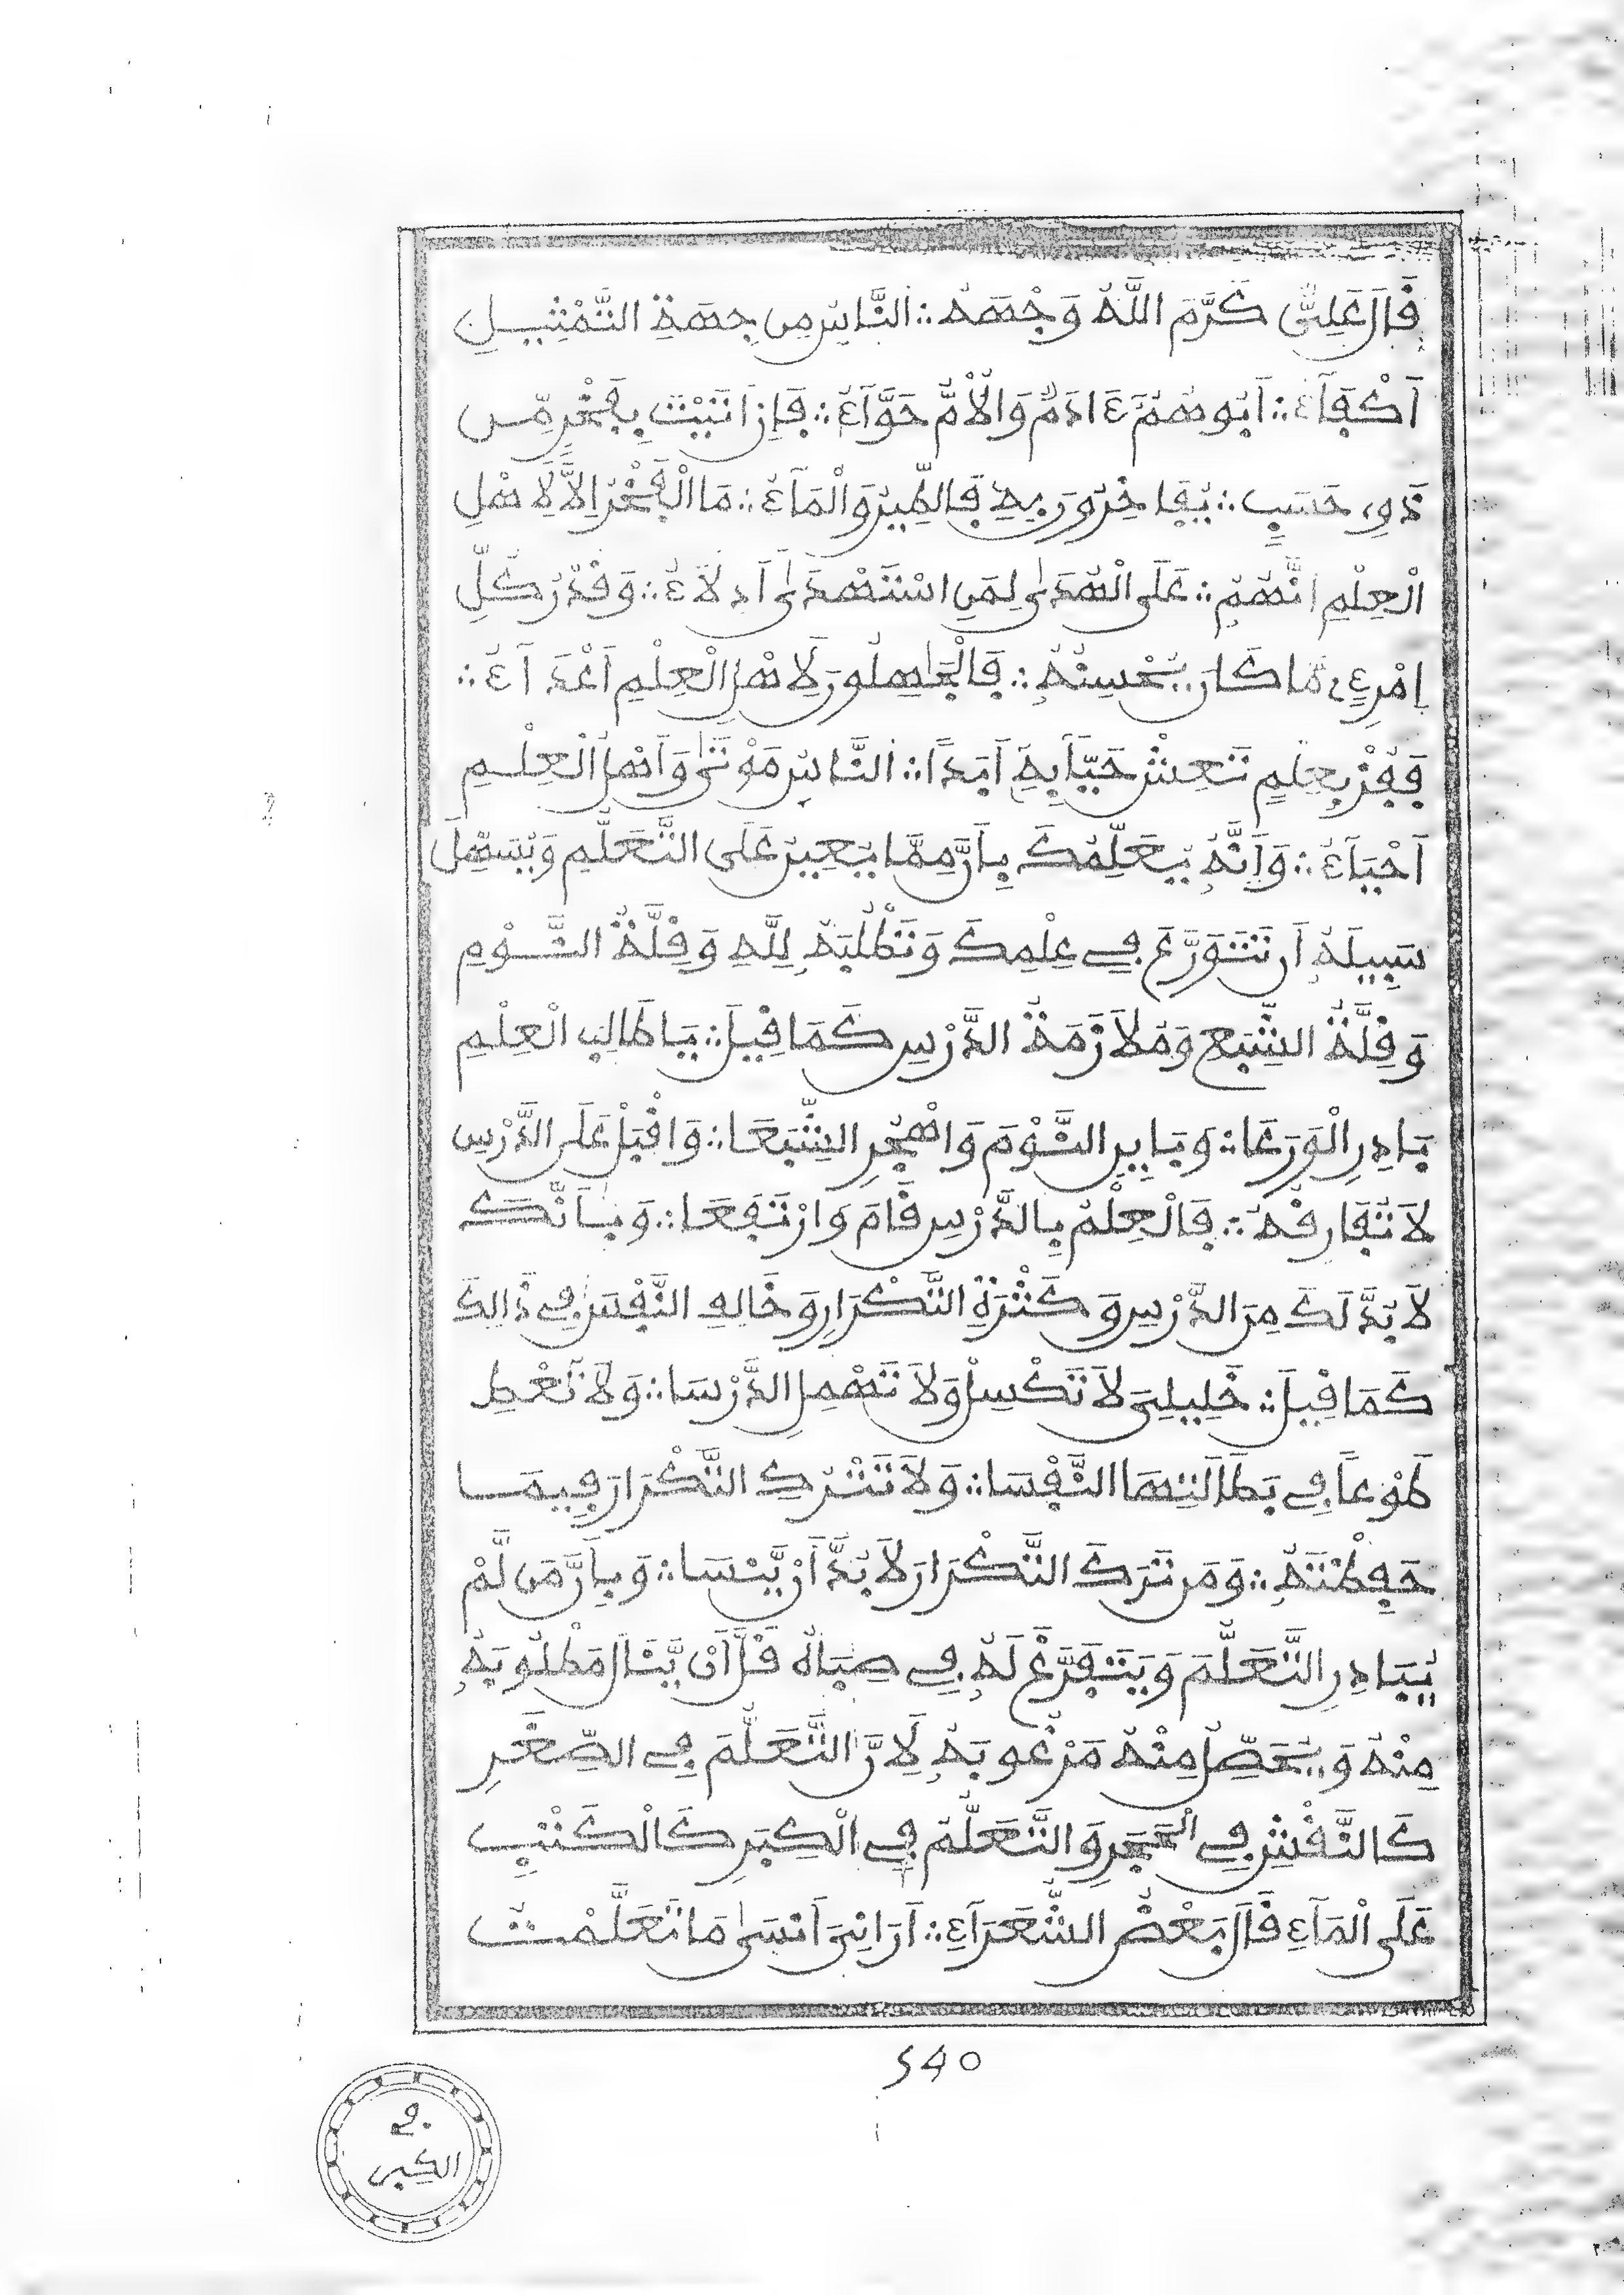 قَالَ عَلِيٌّ كَرَّمَ اللَّهُ وَجْهَهُ ∴ النَّاسُ مِن جِهَةِ التَّمْثِيلِ
أَكْفَآءُ ∴ أَبُوهُمُ ءَادَمٌ وَالْأُمُّ حَوَّآءُ ∴ فَإِنَ اتَيْتَ بِفَخْرٍ مِّن
ذَوِي حَسَبٍ ∴ يُفَاخِرُونَ بِهِ فَالطِّينُ وَالْمَآءُ ∴ مَا الْفَخْرُ إِلَّا لِأَهْلِ
الْعِلْمِ إِنَّهُمْ ∴ عَلَى الْهُدَى لِمَنِ اسْتَهْدَى أَدِلَّاءُ ∴ وَقَدْرُ كُلِّ
امْرِئٍ مَّا كَانَ يُحْسِنُهُ ∴ فَالْجَاهِلُونَ لِأَهْلِ الْعِلْمِ أَعْدَآءُ ∴
فَفُزْ بِعِلْمٍ تَعِشْ حَيّاً بِهِ أَبَداً ∴ النَّاسُ مَوْتَى وَأَهْلُ الْعِلْمِ
أَحْيَآءُ ∴ وَأَنَّهُ يُعَلِّمُكَ بِأَنَّ مِمَّا يُعِينُ عَلَى التَّعَلُّمِ وَيُسَهِّلُ
سَبِيلَهُ أَن تَتَوَرَّعَ فِي عِلْمِكَ وَتَطْلُبَهُ لِلَّهِ وَقِلَّةُ النَّوْمِ
وَقِلَّةُ الشِّبَعِ وَمُلَازَمَةُ الدَّرْسِ كَمَا قِيلَ ∴ يَا طَالِبَ الْعِلْمِ
بَادِرِ الْوَرَعَا ∴ وَبَايِنِ النَّوْمَ وَاهْجُرِ الشِّبَعَا ∴ وَاقْبَلْ عَلَى الدَّرْسِ
لَا تُفَارِقْهُ ∴ فَالْعِلْمُ بِالدَّرْسِ قَامَ وَارْتَفَعَا ∴ وَبِأَنَّكَ
لَا بُدَّ لَكَ مِنَ الدَّرْسِ وَكَثْرَةِ التَّكْرَارِ وَخَالِفِ النَّفْسَ فِي ذَالِكَ
كَمَا قِيلَ ∴ خَلِيلِيَ لَا تَكْسِلْ وَلَا تُهْمِلِ الدَّرْسَا ∴ وَلَا تُعْطِ
طَوْعاً فِي بَطَالَتِهَا النَّفْسَا ∴ وَلَا تَتْرُكِ التَّكْرَارَ فِيمَا
حَفِظْتَهُ ∴ وَمَن تَرَكَ التَّكْرَارَ لَا بُدَّ أَنْ يَّنْسَا ∴ وَبِأَنَّ مَن لَّمْ
يُبَادِرِ التَّعَلُّمَ وَيَتَفَرَّغْ لَهُ فِي صِبَاهُ قَلَّ أَن يَّنَالَ مَطْلُوبَهُ
مِنْهُ وَيُحَصِّلَ مِنْهُ مَرْغُوبَهُ لِأَنَّ التَّعَلُّمَ فِي الصِّغَرِ
كَالنَّقْشِ فِي الْحَجَرِ وَالتَّعَلُّمَ فِي الْكِبَرِ كَالْكَتْبِ
عَلَى الْمَآءِ قَالَ بَعْضُ الشُّعَرَآءِ ∴ أَرَانِيَ أَنسَى مَا تَعَلَّمْتُ
540
فِي
الكبر